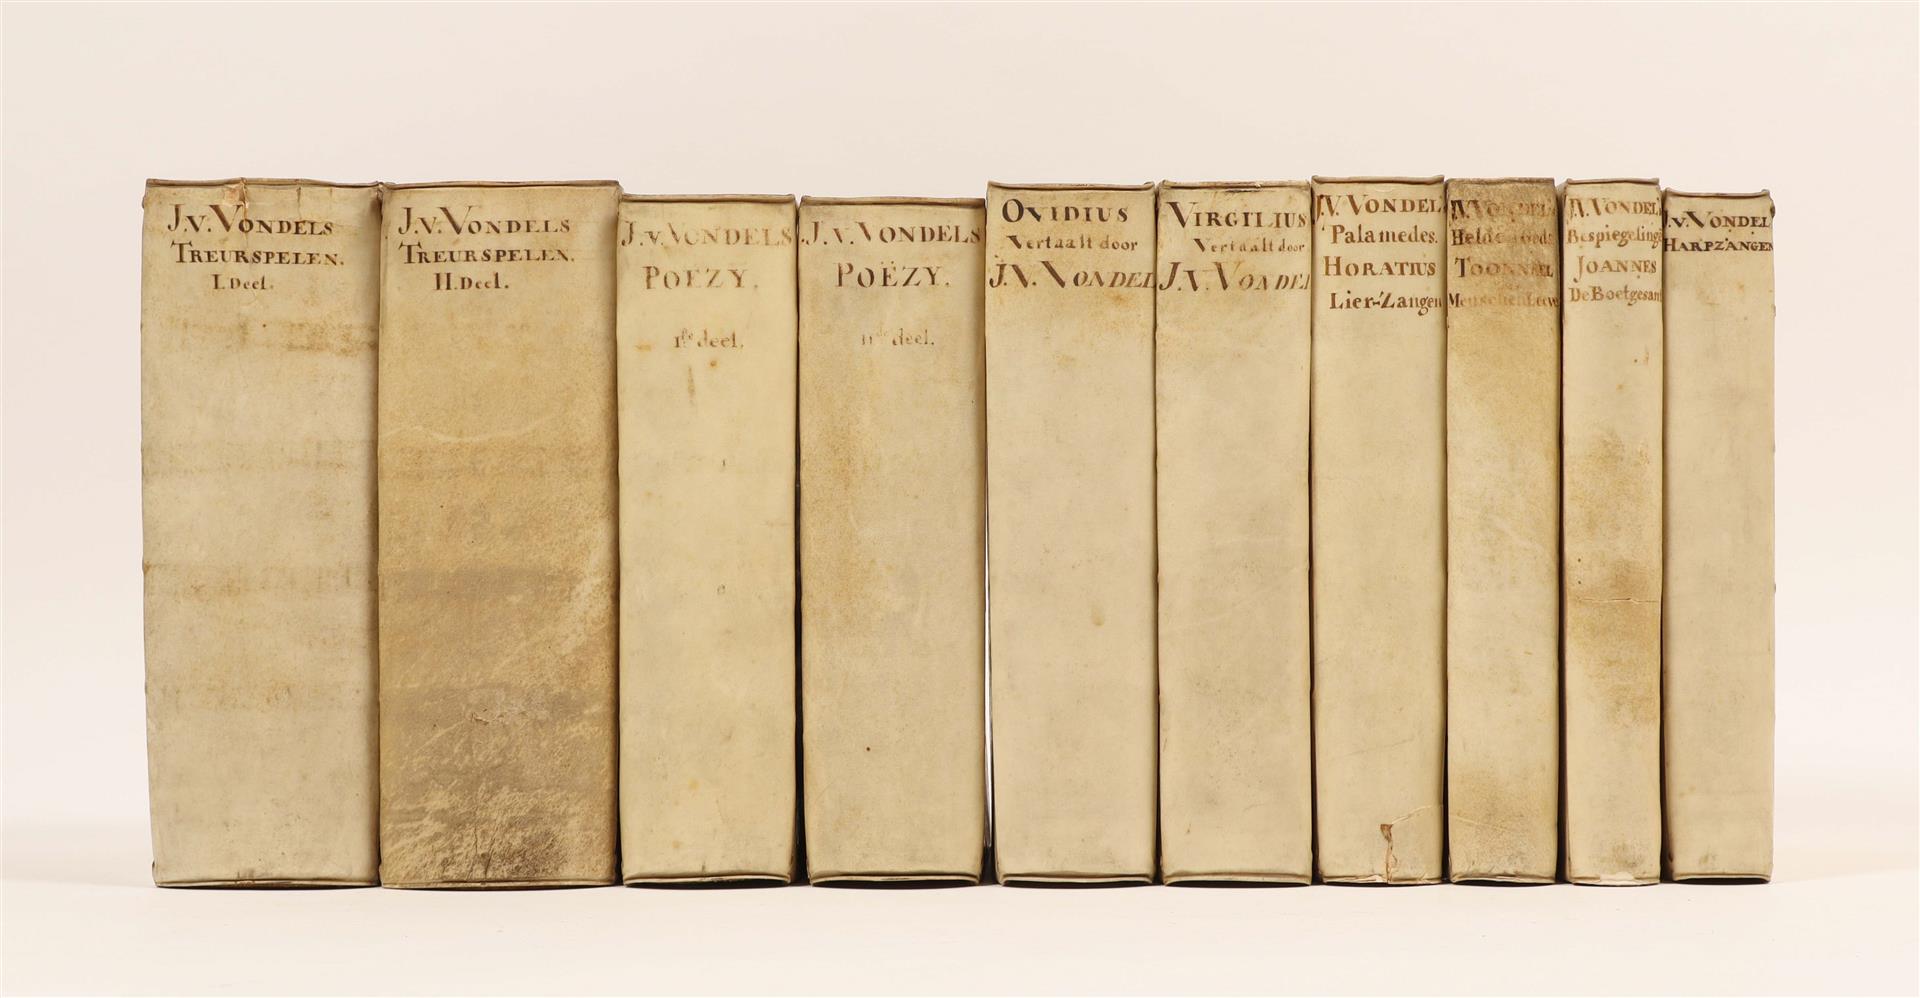 J.v. VONDELS
TREURSPELEN.
I. Deel.
J.v. VONDELS
TREURSPELEN.
II. Deel.
J.v. VONDELS
POEZY.
Iste deel.
J.v. VONDELS
POËZY.
IIde deel.
OVIDIUS
Vertaalt door
J.V. VONDEL
VIRGILIUS
Vertaalt door
J.V. VONDEL
J.V. VONDEL
Palamedes.
HORATIUS
Lier-Zangen
J.V. VONDEL
TOONNEEL
J.V. VONDEL
Bespiegeling
JOANNES
De Boetgesant
J.v. VONDEL
HARPZANGEN